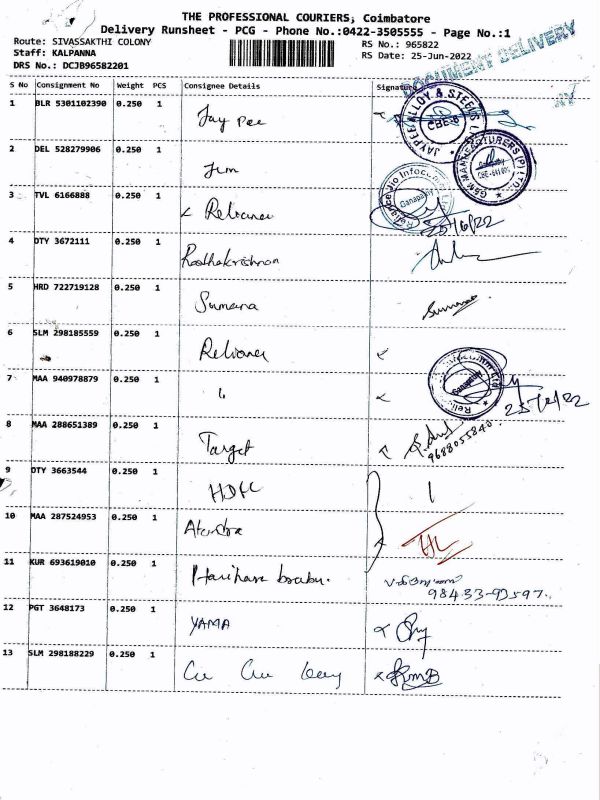 THE PROFESSIONAL COURIERS, Coimbatore
Delivery Runsheet - PCG - Phone No.:0422-3505555 - Page No.:1
Route: SIVASSAKTHI COLONY
RS No.: 965822
Staff: KALPANNA
RS Date: 25-Jun-2022
DRS No.: DCJB96582201
DOCUMENT DELIVERY
BY
S No Consignment No Weight PCS Consignee Details Signature
1 BLR 5301102390 0.250 1 Jay Pee
JAYPEE ALLOY & STEELS
CBE-6
2 DEL 528279906 0.250 1
MANUFACTURERS (P) LTD
3 TVL 6166888 0.250 1 Reliance
Reliance Jio Infocomm Ltd
Ganapathy
25/6/22
4 DTY 3672111 0.250 1 Radhakrishnan
5 HRD 722719128 0.250 1 Sumana
6 SLM 298185559 0.250 1 Reliance
7 MAA 940978879 0.250 1 "
Ganapathy
25/6/22
8 MAA 288651389 0.250 1 Target
9688055840
9 DTY 3663544 0.250 1 HDFC
10 MAA 287524953 0.250 1
11 KUR 693619010 0.250 1 Harihara babu.
98433-93597
12 PGT 3648173 0.250 1 YAMA
13 SLM 298188229 0.250 1